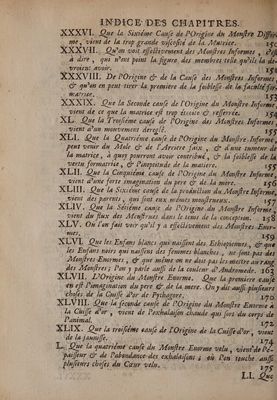 INDICE DES CHAPITRES.
XXXVI. Que la Sixième Cause de l'Origine du Monstre Diffor-
me, vient de la trop grande viscosité de la Matrice. 150
XXXVII. Qu'on voit effectivement des Monstres Informes, c'est
à dire, qui n'ont point la figure des membres telle qu'ils la de-
vroient avoir.
XXXVIII. De l'Origine & de la Cause des Monstres Informes,
& qu'on en peut tirer la premiere de la foiblesse de la faculté for-
matrice. 153
XXXIX. Que la Seconde cause de l'Origine du Monstre Informe,
vient de ce que la matrice est trop étroite & resserrée. 154
XL. Que la Troisième cause de l'Origine des Monstres Informes,
vient d'un mouvement déreglé.
XLI. Que la Quatrième cause de l'Origine du Monstre Informe,
peut venir du Mole & de l'Arriere faix, & d'une tumeur de
la matrice, à quoy pourront avoir contribué, & la foiblesse de la
vertu formatrice, & l'impureté de la matiere. 155
XLII. Que la Cinquième cause de l'Origine du Monstre Informe,
vient d'une forte imagination du pere & de la mere. 156
XLIII. Que la Sixième cause de la production du Monstre Informe,
vient des parents, qui sont eux mêmes monstrueux. 157
XLIV. Que la Sétième cause de l'Origine du Monstre Informe,
vient du flux des Menstrues dans le tems de la conception. 158
XLV. Où l'on fait voir qu'il y a effectivement des Monstres Enor-
mes. 159
XLVI. Que les Enfans blancs qui naissent des Ethiopiennes, & que
les Enfans noirs qui naissent des femmes blanches, ne sont pas des
Monstres Enormes, & que même on ne doit pas les mettre au rang
des Monstres; l'on y parle aussi de la couleur d'Andromede. 163
XLVII. L'Origine du Monstre Enorme. Que la premiere cause
en est l'imagination du pere & de la mere. On y dit aussi plusieurs
choses de la Cuisse d'or de Pythagore. 170
XLVIII. Que la seconde cause de l'Origine du Monstre Enorme à
la Cuisse d'or, vient de l'exhalaison chaude qui sort du corps de
l'animal. 172
XLIX. Que la troisième cause de l'Origine de la Cuisse d'or, vient
de la jaunisse. 174
L. Que la quatrième cause du Monstre Enorme velu, vient de l'é-
paisseur & de l'abondance des exhalaisons; où l'on touche aussi
plusieurs choses du Cœur velu. 175
LI. Que